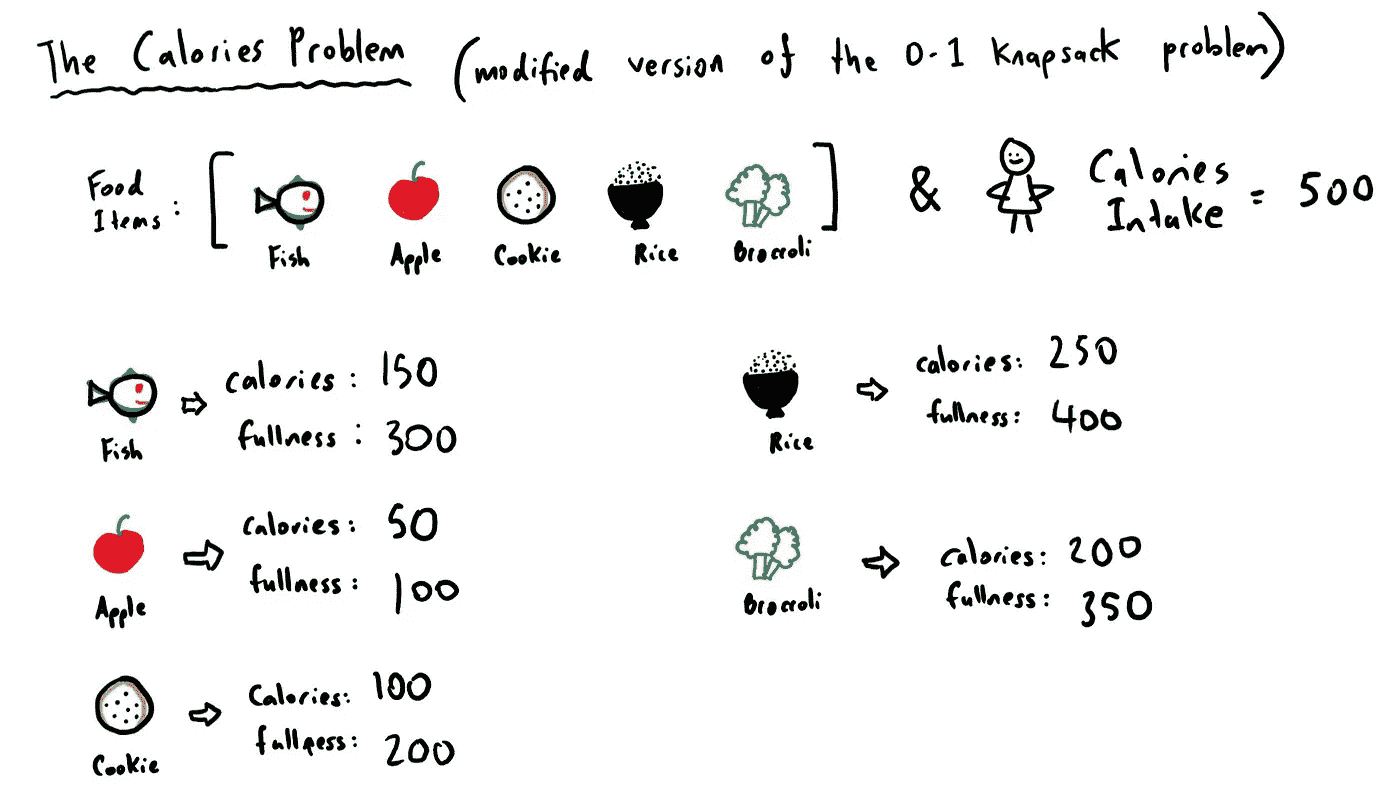 The Calories Problem (modified version of the 0-1 Knapsack problem)
Food Items: [ Fish Apple Cookie Rice Broccoli ] & Calories Intake = 500
Fish
calories: 150
fullness: 300
Apple
calories: 50
fullness: 100
Cookie
Calories: 100
fullness: 200
Rice
calories: 250
fullness: 400
Broccoli
calories: 200
fullness: 350